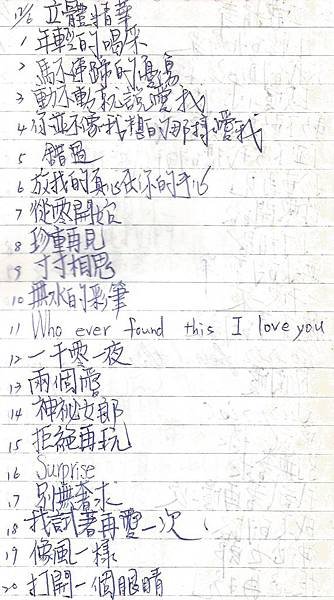 12/6 立體精華
1 年輕的喝采
2 馬不停蹄的憂傷
3 動不動就說愛我
4 你並不像我想的那樣愛我
5 錯過
6 放我的真心在你的手心
7 從零開始
8 珍重再見
9 寸寸相思
10 無水的彩筆
11 Who ever found this I love you
12 一千零一夜
13 兩個愛
14 神祕女郎
15 拒絕再玩
16 Surprise
17 別無奢求
18 我試著再愛一次
19 像風一樣
20 打開一個眼睛